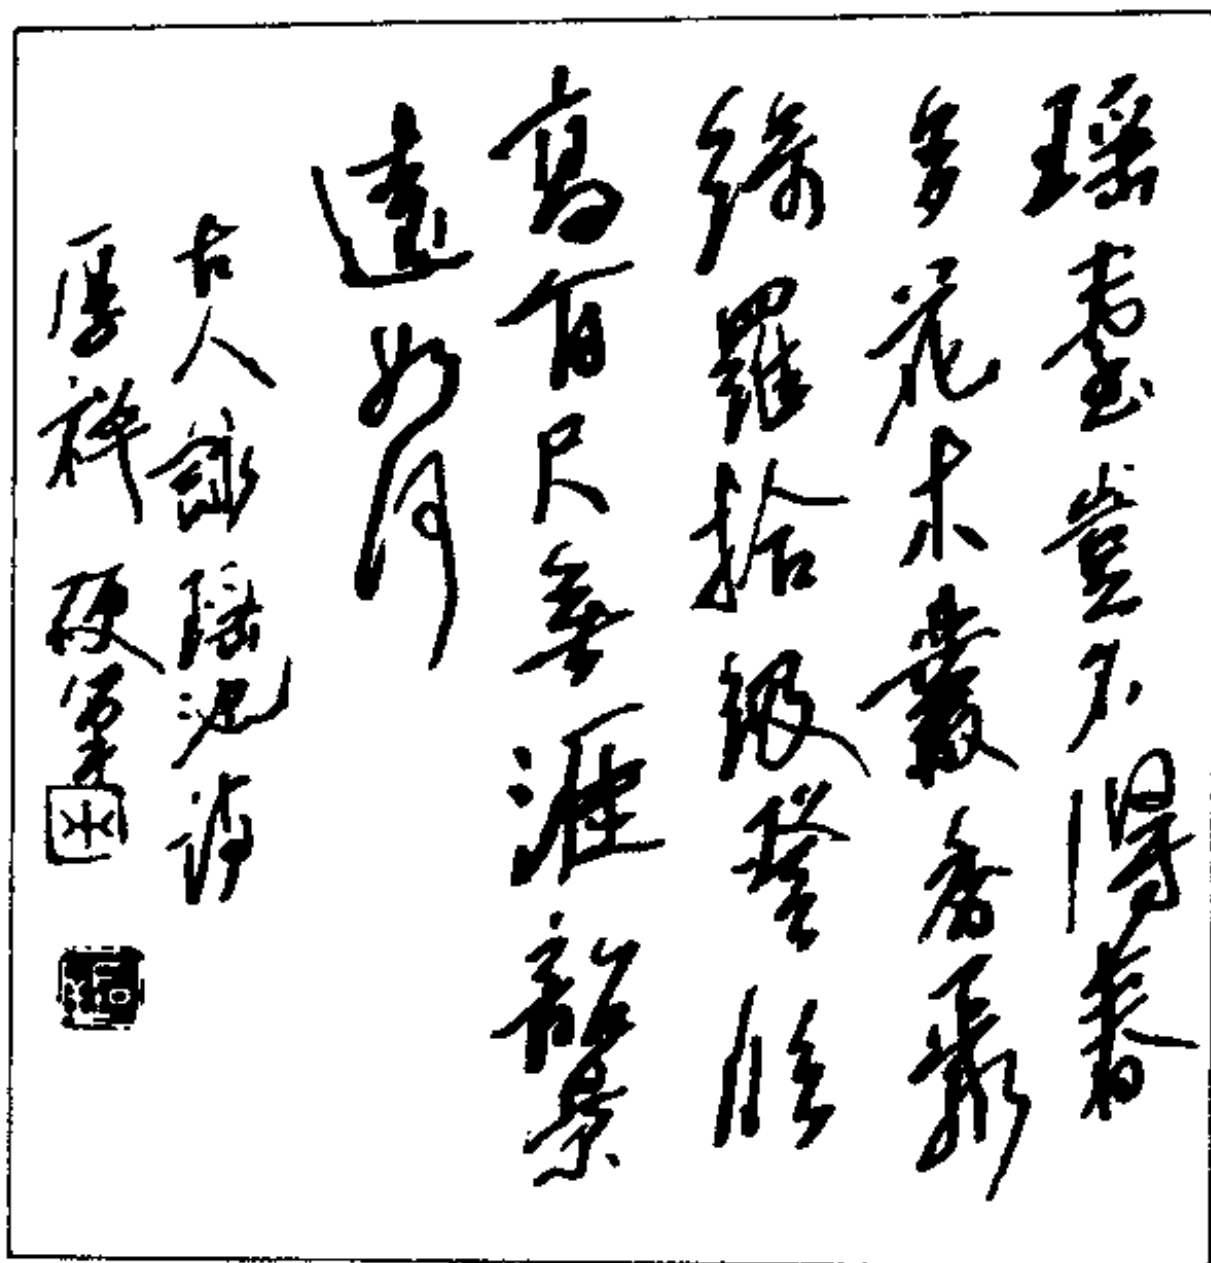 瑶臺豈不得春
多花木叢香聚
綺羅拾級登臨
高百尺無涯韶景
遠如何
古人詠瑶池詩
厚祥硬筆